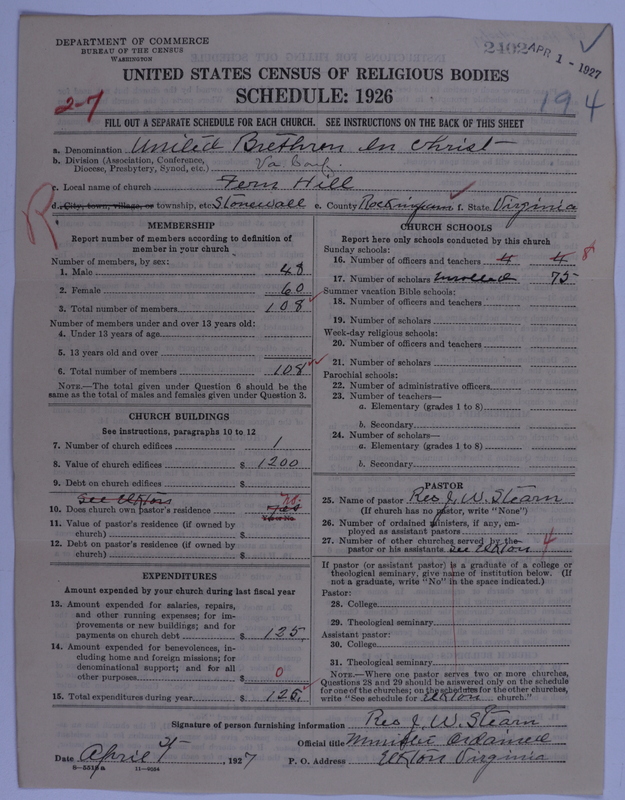 DEPARTMENT OF COMMERCE
BUREAU OF THE CENSUS
WASHINGTON
2402 APR 1 - 1927
UNITED STATES CENSUS OF RELIGIOUS BODIES
SCHEDULE: 1926
2-7
194
FILL OUT A SEPARATE SCHEDULE FOR EACH CHURCH. SEE INSTRUCTIONS ON THE BACK OF THIS SHEET
a. Denomination United Brethren In Christ
b. Division (Association, Conference, Diocese, Presbytery, Synod, etc.) Va. Conf.
c. Local name of church Fern Hill
d. City, town, village, or township, etc. Stonewall e. County Rockingham f. State Virginia
R
MEMBERSHIP
Report number of members according to definition of
member in your church
Number of members, by sex:
1. Male 48
2. Female 60
3. Total number of members 108
Number of members under and over 13 years old:
4. Under 13 years of age
5. 13 years old and over
6. Total number of members 108
NOTE.—The total given under Question 6 should be the
same as the total of males and females given under Question 3.
CHURCH BUILDINGS
See instructions, paragraphs 10 to 12
7. Number of church edifices 1
8. Value of church edifices $ 1200
9. Debt on church edifices $
See Elkton
10. Does church own pastor's residence no
Yes or No
11. Value of pastor's residence (if owned by
church) $
12. Debt on pastor's residence (if owned by
church) $
EXPENDITURES
Amount expended by your church during last fiscal year
13. Amount expended for salaries, repairs,
and other running expenses; for im-
provements or new buildings; and for
payments on church debt $ 125
14. Amount expended for benevolences, in-
cluding home and foreign missions; for
denominational support; and for all
other purposes $ 0
15. Total expenditures during year $ 125
CHURCH SCHOOLS
Report here only schools conducted by this church
Sunday schools:
16. Number of officers and teachers 4 4 8
17. Number of scholars enrolled 75
Summer vacation Bible schools:
18. Number of officers and teachers
19. Number of scholars
Week-day religious schools:
20. Number of officers and teachers
21. Number of scholars
Parochial schools:
22. Number of administrative officers
23. Number of teachers—
a. Elementary (grades 1 to 8)
b. Secondary
24. Number of scholars—
a. Elementary (grades 1 to 8)
b. Secondary
PASTOR
25. Name of pastor Rev J. W. Stearn
(If church has no pastor, write "None")
26. Number of ordained ministers, if any, em-
ployed as assistant pastors
27. Number of other churches served by the
pastor or his assistants see Elkton 4
If pastor (or assistant pastor) is a graduate of a college or
theological seminary, give name of institution below. (If
not a graduate, write "No" in the space indicated.)
Pastor:
28. College
29. Theological seminary
Assistant pastor:
30. College
31. Theological seminary
NOTE.—Where one pastor serves two or more churches,
Questions 28 and 29 should be answered only on the schedule
for one of the churches; on the schedules for the other churches,
write "See schedule for Elkton church."
Signature of person furnishing information Rev J. W. Stearn
Official title Minister Ordained
Date April, 1927 P. O. Address Elkton Virginia
8—5518a 11—9554